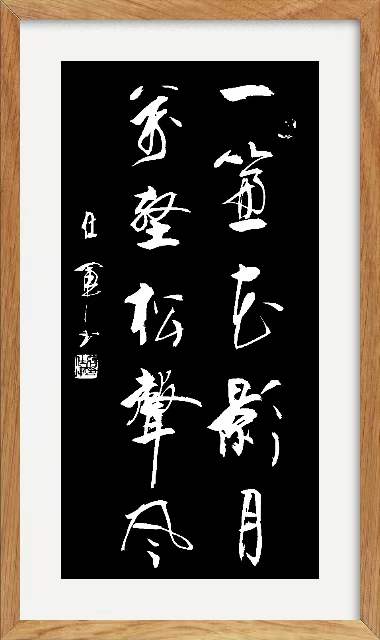 一簾花影月
萬壑松聲風